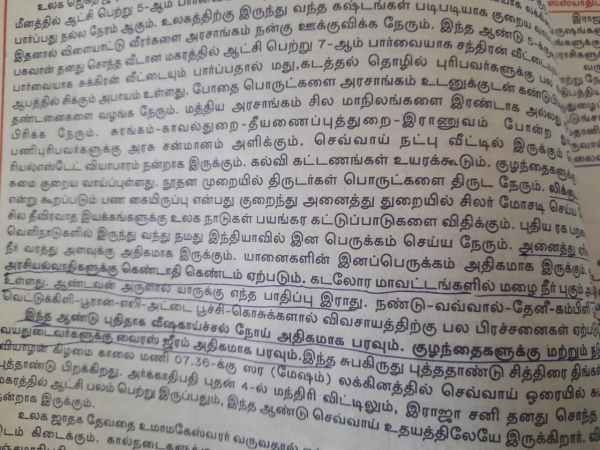 உலக ஜெ
மீனத்தில் ஆட்சி பெற்று 5-ஆம் பார்வையாக
பார்ப்பது நல்ல நேரம் ஆகும். உலகத்திற்கு இருந்து வந்த கஷ்டங்கள் படிபடியாக குறைய
இதனால் விளையாட்டு வீரர்களை அரசாங்கம் நன்கு ஊக்குவிக்க நேரும். இந்த ஆண்டு
பகவான் தனது சொந்த வீடான மகரத்தில் ஆட்சி பெற்று 7-ஆம் பார்வையாக சந்திரன் வீட்டை
பார்வையாக சுக்கிரன் வீட்டையும் பார்ப்பதால் மது,கடத்தல் தொழில் புரிபவர்களுக்கு பல
ஆபத்தில் சிக்கும் அபாயம் உள்ளது. போதை பொருட்களை அரசாங்கம் உடனுக்குடன் கண்டுபி
தண்டனைகளை வழங்க நேரும். மத்திய அரசாங்கம் சில மாநிலங்களை இரண்டாக அல்லது
பிரிக்க நேரும். சுரங்கம்-காவல்துறை-தீயணைப்புத்துறை-இராணுவம் போன்ற
பணிபுரிபவர்களுக்கு அரசு சன்மானம் அளிக்கும். செவ்வாய் நட்பு வீட்டில் இருக்கும்
ரியல்எஸ்டேட் வியாபாரம் நன்றாக இருக்கும். கல்வி கட்டணங்கள் உயரக்கூடும். குழந்தைகளுக்கு
சுமை குறைய வாய்ப்புள்ளது. நூதன முறையில் திருடர்கள் பொருட்களை திருட நேரும்.
என்று கூறப்படும் பண கையிருப்பு என்பது குறைந்து அனைத்து துறையில் சிலர் மோசடி செய்ய
சில தீவிரவாத இயக்கங்களுக்கு உலக நாடுகள் பயங்கர கட்டுப்பாடுகளை விதிக்கும். புதிய ரக
வெளிநாடுகளில் இருந்து வந்து நமது இந்தியாவில் இன பெருக்கம் செய்ய நேரும். அனைத்து
நீர் வரத்து அளவுக்கு அதிகமாக இருக்கும். யானைகளின் இனப்பெருக்கம் அதிகமாக இருக்கும்.
அரசியல்வாதிகளுக்கு கெண்டாதி கெண்டம் ஏற்படும். கடலோர மாவட்டங்களில் மழை நீர் புகும்
உள்ளது. ஆண்டவன் அருளால் யாருக்கு எந்த பாதிப்பு இராது. நண்டு-வவ்வால்-தேனீ-கம்பிளி
வெட்டுக்கிளி-பூரான்-எலி-அட்டை பூச்சி-கொசுக்களால் விவசாயத்திற்கு பல பிரச்சனைகள் ஏற்ப
இந்த ஆண்டு புதிதாக விஷகாய்ச்சல் நோய் அதிகமாக பரவும். குழந்தைகளுக்கு மற்றும்
வயதுடையவர்களுக்கு வைரஸ் ஜுரம் அதிகமாக பரவும்,இந்த சுபகிருது புத்ததாண்டு சித்திரை திங்கள்
வியாழன் கிழமை காலை மணி 07.36-க்கு ஸர (மேஷம்) லக்கினத்தில் செவ்வாய் ஓரையில் சு
புத்தாண்டு பிறகிறது. அர்க்காதிபதி புதன் 4-ல் மந்திரி வீட்டிலும், இராஜா சனி தனது சொந்த
மகரத்தில் ஆட்சி பலம் பெற்று இருப்பதும், இந்த ஆண்டு செவ்வாய் உதயத்திலேயே இருக்கிறார்.
நன்றாக இருக்கும்.
உலக ஜாதக தேவதை உமாமகேஸ்வரர் வருவதால்
இடம் கிடைக்கும். கால்நடைகளுக்கு